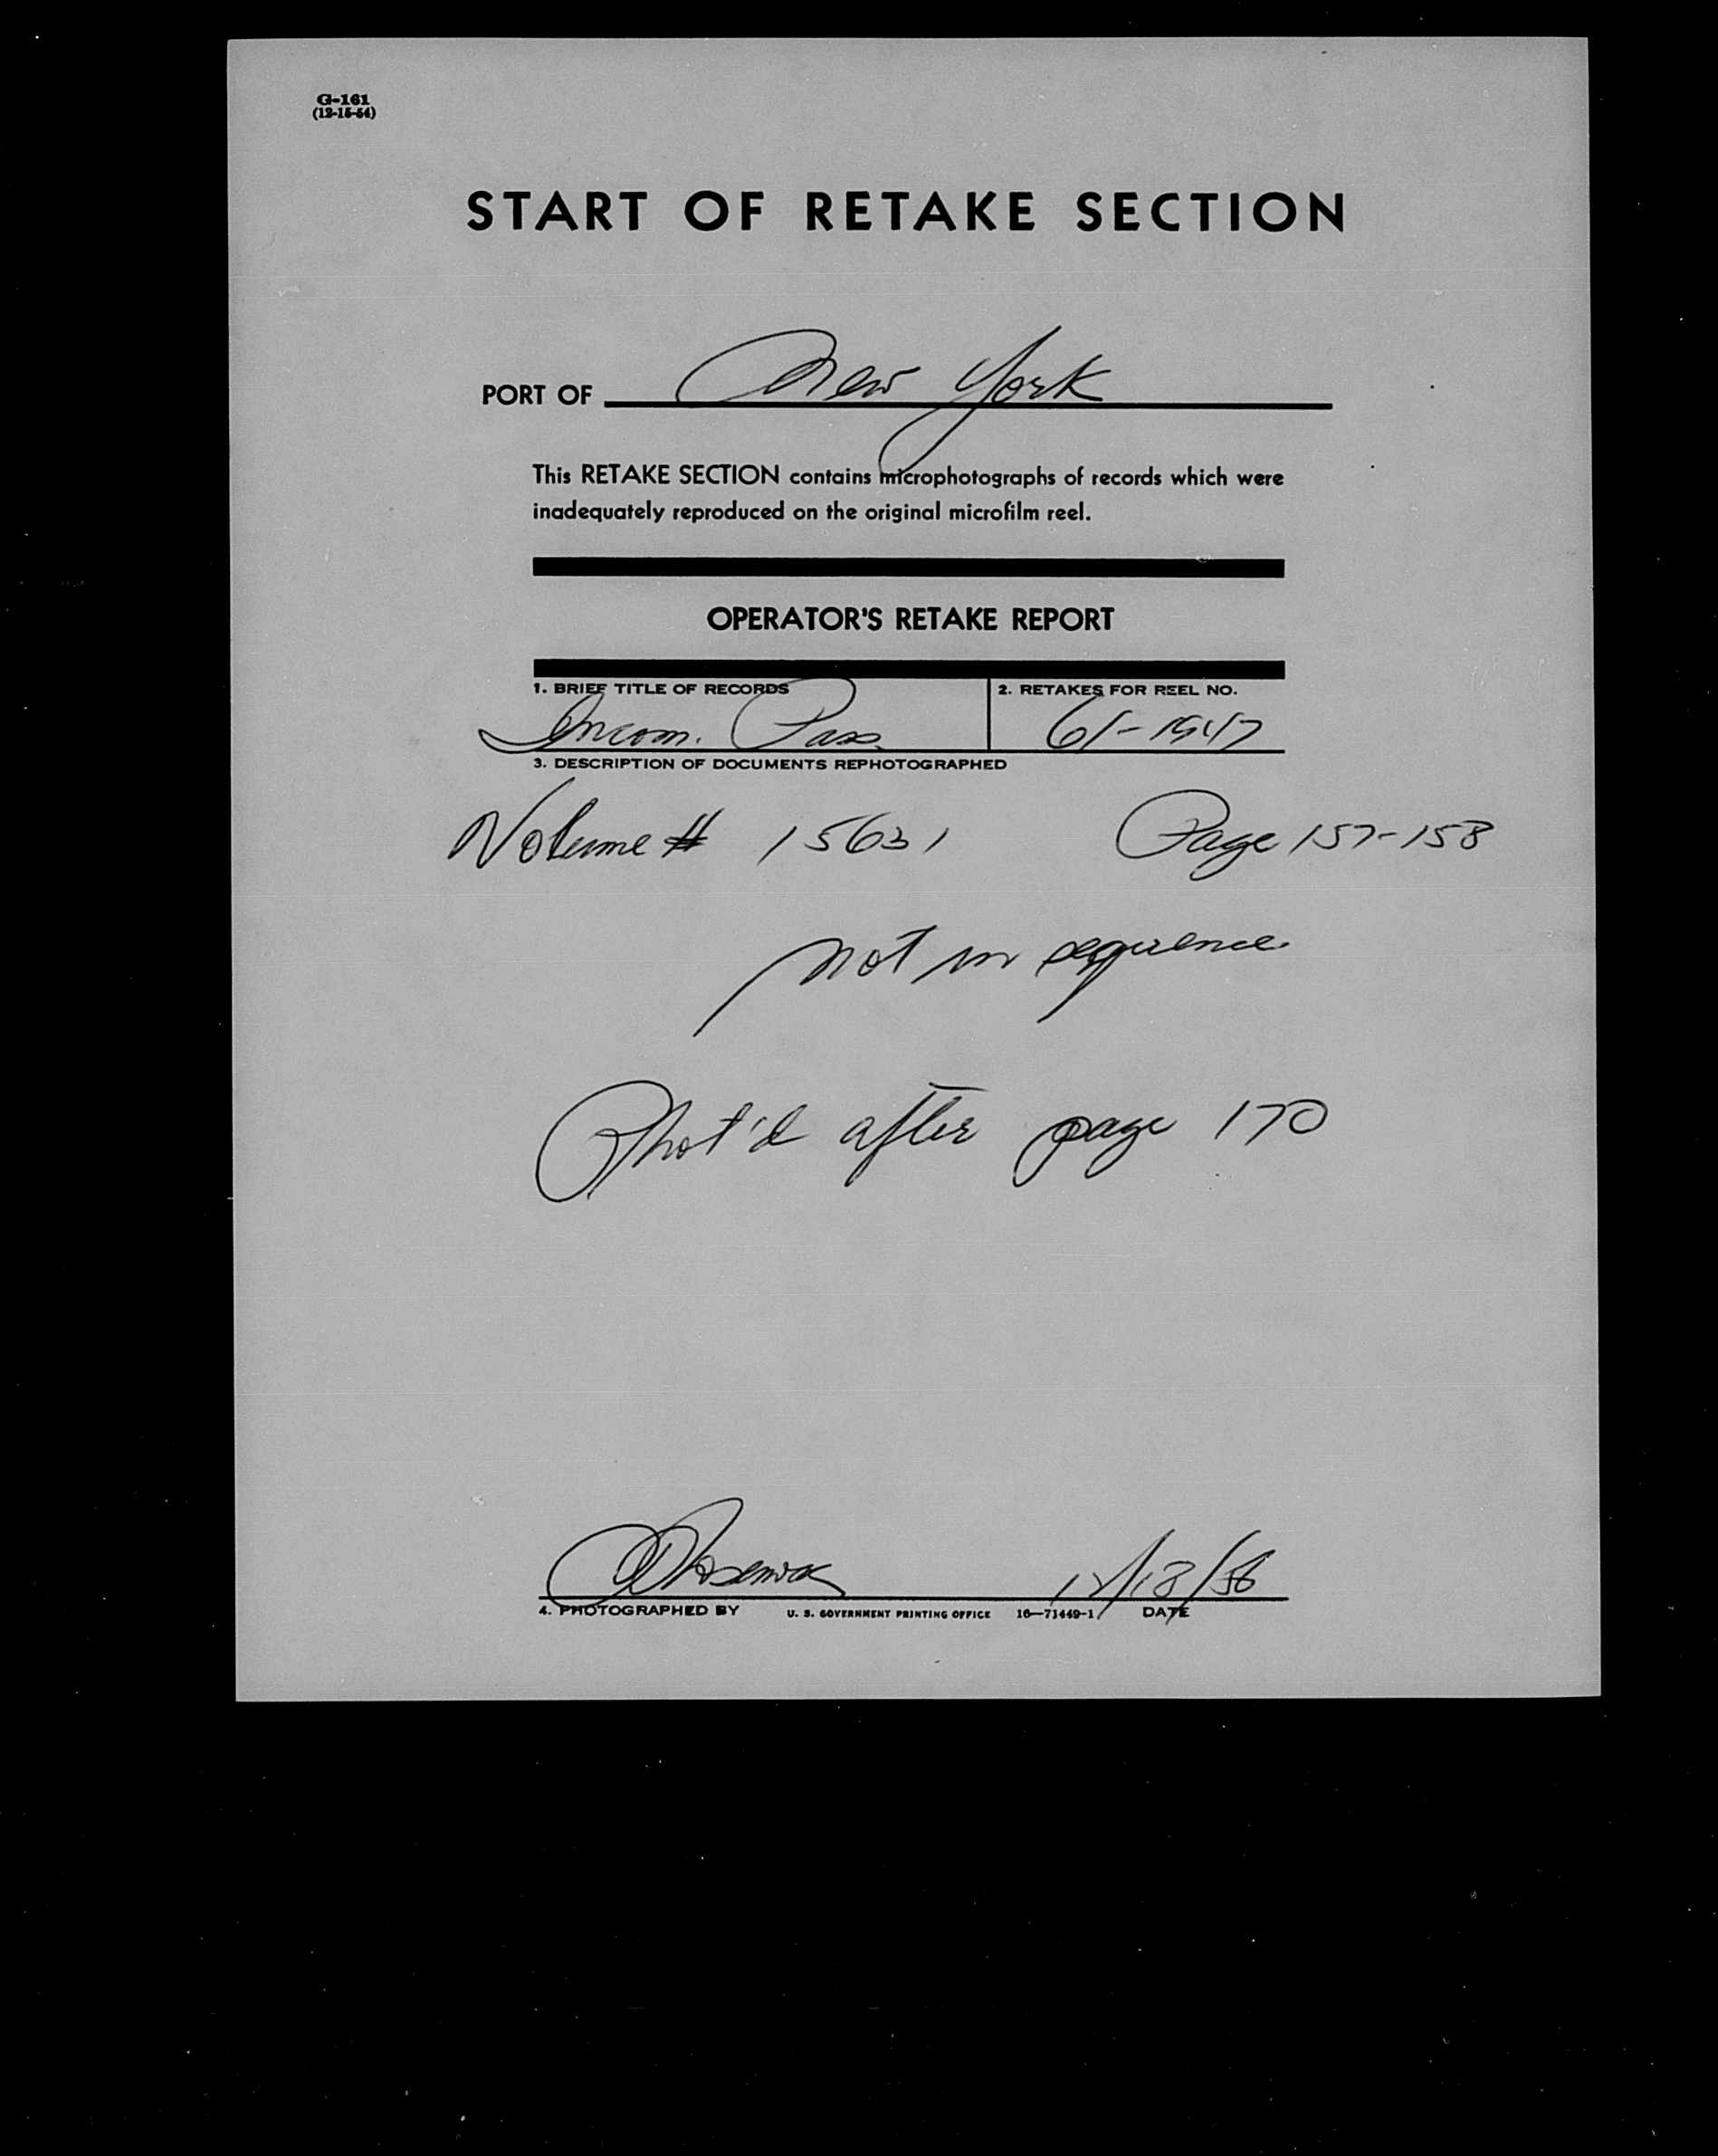 G-161
(12-15-54)
START OF RETAKE SECTION
PORT OF New York
This RETAKE SECTION contains microphotographs of records which were
inadequately reproduced on the original microfilm reel.
OPERATOR'S RETAKE REPORT
1. BRIEF TITLE OF RECORDS 2. RETAKES FOR REEL NO.
Incom. Pass. 61-1947
3. DESCRIPTION OF DOCUMENTS REPHOTOGRAPHED
Volume # 15631 Page 157-158
not in sequence
Phot'd after page 170
12/18/56
4. PHOTOGRAPHED BY U. S. GOVERNMENT PRINTING OFFICE 16—71449-1 DATE